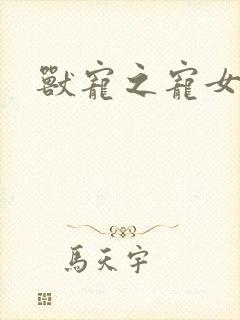 獸寵之寵女
馬天宇